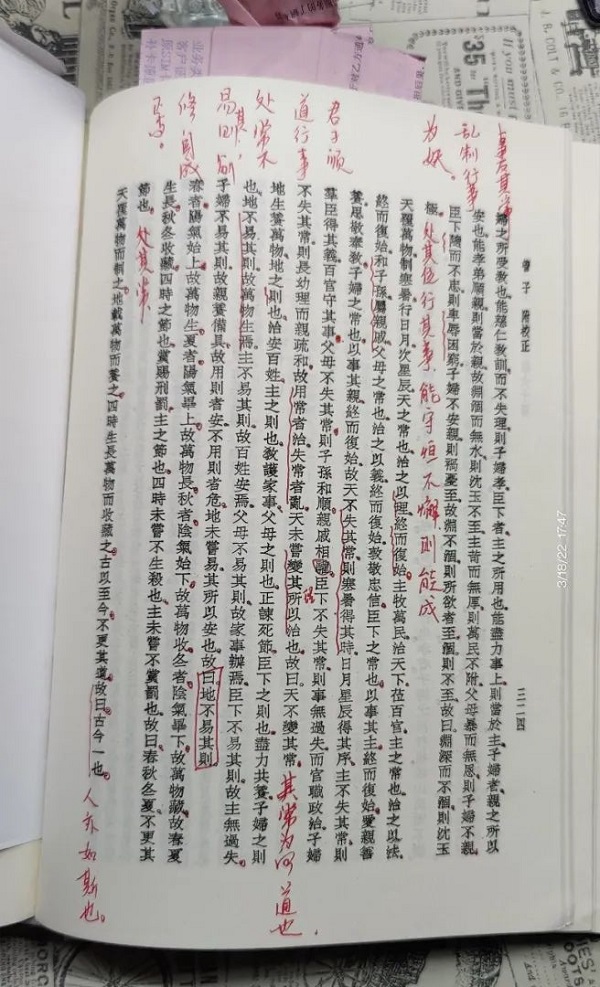 管子 附校正
三二四
上事君其守
乱制行事
为妖。
婦之所受教也能慈仁教訓而不失理則子婦孝臣下者主之所用也能盡力事上則當於主子婦者親之所以
安也能孝弟順親則當於親故淵涸而無水則沈玉不至主苛而無厚則萬民不附父母暴而無恩則子婦不親
臣下隨而不忠則卑辱困窮子婦不安親則禍憂至故淵不涸則所欲者至涸則不至故曰淵深而不涸則沈玉
極 处其位行其事,能守恒不懈,则能成
天覆萬物制寒暑行日月次星辰天之常也治之以理終而復始主牧萬民治天下莅百官主之常也治之以法
終而復始和子孫屬親戚父母之常也治之以義終而復始敦敬忠信臣下之常也以事其主終而復始愛親善
養思敬奉教子婦之常也以事其親終而復始故天不失其常則寒暑得其時日月星辰得其序主不失其常則
羣臣得其義百官守其事父母不失其常則子孫和順親戚相驩臣下不失其常則事無過失而官職政治子婦
不失其常則長幼理而親疏和故用常者治失常者亂天未嘗變其所以治也故曰天不變其常 其常为何 道也.
君子顺
道行事
处常不
易其则
修
地生養萬物地之則也治安百姓主之則也教護家事父母之則也正諫死節臣下之則也盡力共養子婦之則
也地不易其則故萬物生焉主不易其則故百姓安焉父母不易其則故家事辦焉臣下不易其則故主無過失
子婦不易其則故親養備具故用則者安不用則者危地未嘗易其所以安也故曰地不易其則
春者陽氣始上故萬物生夏者陽氣畢上故萬物長秋者陰氣始下故萬物收冬者陰氣畢下故萬物藏故春夏
生長秋冬收藏四時之節也賞賜刑罰主之節也四時未嘗不生殺也主未嘗不賞罰也故曰春秋冬夏不更其
節也 处其常
天覆萬物而制之地載萬物而養之四時生長萬物而收藏之古以至今不更其道故曰古今一也 人亦如斯也。
3/18/22 17:47
35